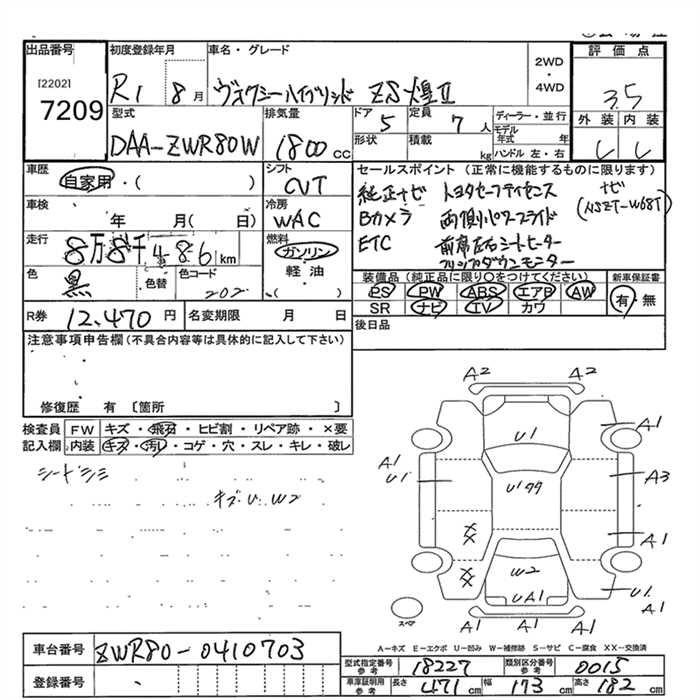 出品番号 初度登録年月 車名・グレード 評価点
[2202] 7209
R1 8月 ヴォクシーハイブリッド ZS煌II 2WD・4WD 3.5
型式 排気量 ドア 定員 ディーラー・並行 外装 内装
DAA-ZWR80W 1800cc 5 7人 モデル年式 年
形状 積載 kg ハンドル 左・右
車歴 シフト セールスポイント (正常に機能するものに限ります)
自家用・( ) CVT 純正ナビ トヨタセーフティセンス ナビ
車検 冷房 Bカメラ 両側パワースライド (NSZT-W68T)
年 月(日) WAC ETC 前席左右シートヒーター
走行 燃料 フリップダウンモニター
8万8千486km ガソリン
色 色替 色コード 軽・油 装備品(純正品に限り○をつけてください) 新車保証書
黒 202 ・( ) PS PW ABS エアB AW 有・無
SR ナビ TV カワ
R券 12,470円 名変期限 月 日 後日品
注意事項申告欄(不具合内容等は具体的に記入して下さい)
修復歴 有〔箇所 〕
検査員 FW キズ・飛石・ヒビ割・リペア跡・×要
記入欄 内装 キズ・汚れ・コゲ・穴・スレ・キレ・破レ
シートシミ
キズ U W2
A2 A2
U1 A1
A1 U1 U1 A3
XX A1
XX W2 U1
UA1 A1
スペア A1 A1 A1
A-キズ E-エクボ U-凹み W-補修跡 S-サビ C-腐食 XX-交換済
車台番号 ZWR80-0410703
型式指定番号 参考 18227 類別区分番号 参考 0015
登録番号 車庫証明用 参考 長さ 471cm 幅 173cm 高さ 182cm